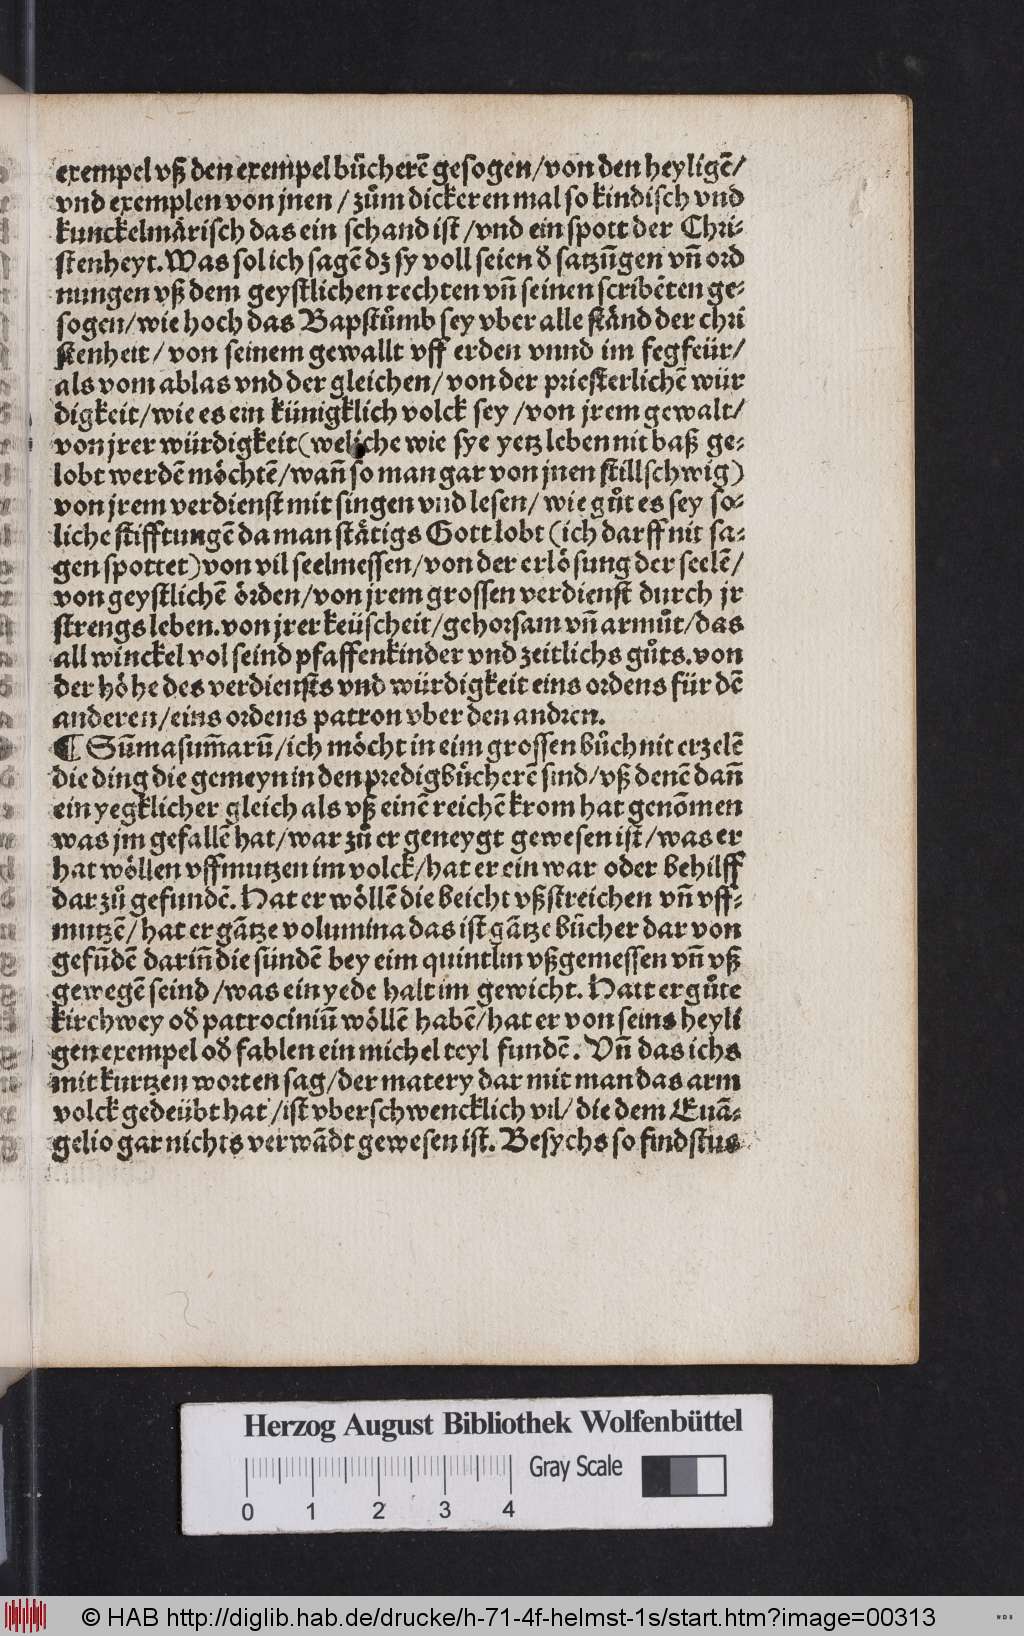 exempel vß den exempelbuͤcherē gesogen/von den heyligē/
vnd exemplen von jnen / zuͦm dickeren mal so kindisch vnd
kunckelmaͤrisch das ein schand ist /vnd ein spott der Chri-
stenheyt. Was sol ich sagē dz sy voll seien ď satzūgen vñ ord
nungen vß dem geystlichen rechten vñ seinen scribētен ge-
sogen/wie hoch das Bapstuͦmb sey vber alle staͤnd der chri
stenheit/ von seinem gewallt vff erden vnnd im fegfeür/
als vom ablas vnd der gleichen/ von der priesterlichē wür
digkeit/wie es ein künigklich volck sey /von jrem gewalt/
von jrer würdigkeit (weliche wie sye yetz leben nit baß ge-
lobt werdē moͤchtē/wañ so man gar von jnen stillschwig)
von jrem verdienst mit singen vnd lesen/ wie guͦt es sey so-
liche stifftungē da man staͤtigs Gott lobt (ich darff nit sa-
gen spottet) von vil seelmessen/von der erloͤsung der seelē/
von geystlichē oͤrden/von jrem grossen verdienst durch jr
strengs leben. von jrer keüscheit/gehorsam vñ armuͦt/das
all winckel vol seind pfaffenkinder vnd zeitlichs guͦts. von
der hoͤhe des verdiensts vnd würdigkeit eins ordens für dē
anderen/eins ordens patron vber den andren.
¶ Sum̄asum̄arū/ich moͤcht in eim grossen buͦch nit erzelē
die ding die gemeyn in den predigbuͤcherē sind/vß denē dañ
ein yegklicher gleich als vß einē reichē krom hat genōmen
was jm gefallē hat/war zuͦ er geneygt gewesen ist/was er
hat woͤllen vffmutzen im volck/hat er ein war oder behilff
dar zuͦ gefundē. Hat er woͤllē die beicht vßstreichen vñ vff-
mutzē/ hat er gātze volumina das ist gātze buͤcher dar von
gefūdē dariñ die sündē bey eim quintlin vßgemessen vñ vß
gewegē seind /was ein yede halt im gewicht. Hatt er guͦte
kirchwey oď patrociniū woͤllē habē/hat er von seins heyli
gen exempel oď fablen ein michel teyl fundē. Vñ das ichs
mit kurtzen worten sag/der matery dar mit man das arm
volck gedeübt hat /ist vberschwencklich vil/ die dem Euā-
gelio gar nichts verwādt gewesen ist. Besychs so findstus
Herzog August Bibliothek Wolfenbüttel
Gray Scale
0 1 2 3 4
© HAB http://diglib.hab.de/drucke/h-71-4f-helmst-1s/start.htm?image=00313
WDB